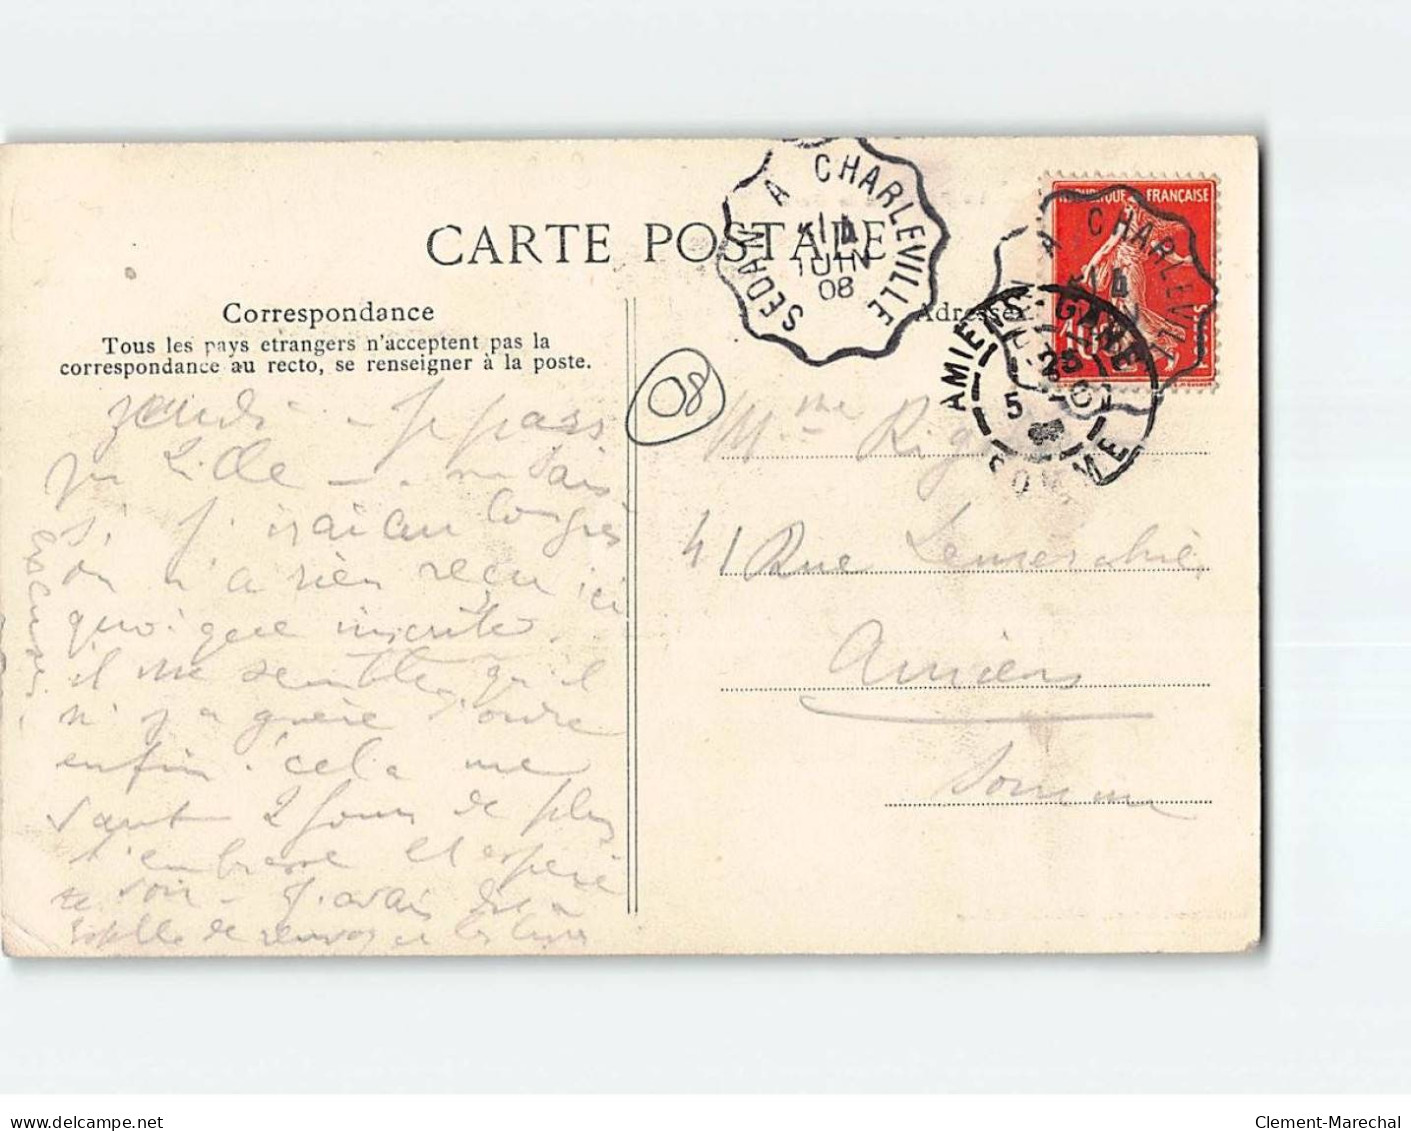 CARTE POSTALE
SEDAN A CHARLEVILLE
4
JUIN
08
REPUBLIQUE FRANÇAISE
A CHARLEVILLE
4
10
AMIENS-GARE
25
5
SOMME
Correspondance
Adresse
Tous les pays etrangers n'acceptent pas la
correspondance au recto, se renseigner à la poste.
08
jeudi - Je passe
par Lille - 
si j'irai au Congrès
on n'a rien reçu ici
quoique inscrite
il me semble qu'il
n'y a guère d'ordre
enfin cela me
2 jours de plus
t'embrasse et espère
te voir - J'avais
de renvoyer les
excuses
Mme
41 Rue Lemerchier
Amiens
Somme
delcampe.net
Clement-Marechal